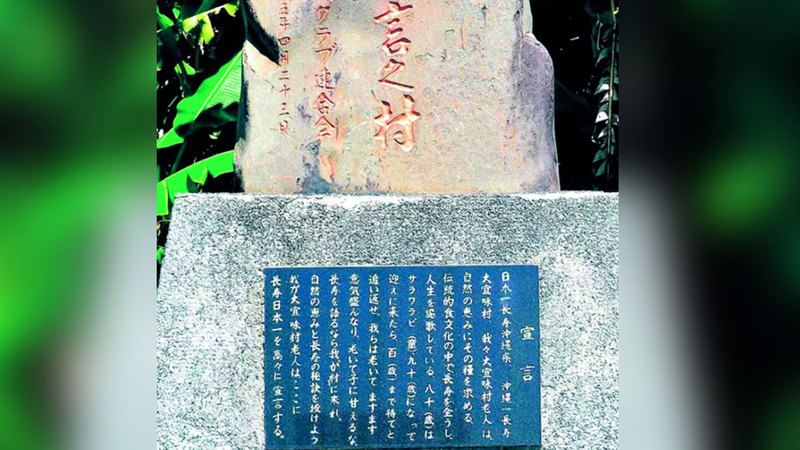 言之村
クラブ連合会
五年四月二十三日
宣言
日本一長寿沖縄県 沖縄一長寿
大宜味村 我々大宜味村老人は
自然の恵みにその糧を求める、
伝統的食文化の中で長寿を全うし、
人生を謳歌している。八十(歳)は
サラワラビ(童)九十(歳)になって
迎えに来たら、百(歳)まで待てと
追い返せ、我らは老いてますます
意気盛んなり、老いて子に甘えるな
長寿を語るなら我が村に来れ、
自然の恵みと長寿の秘訣を授けよう
我が大宜味村老人は、ここに
長寿日本一を高々に宣言する。